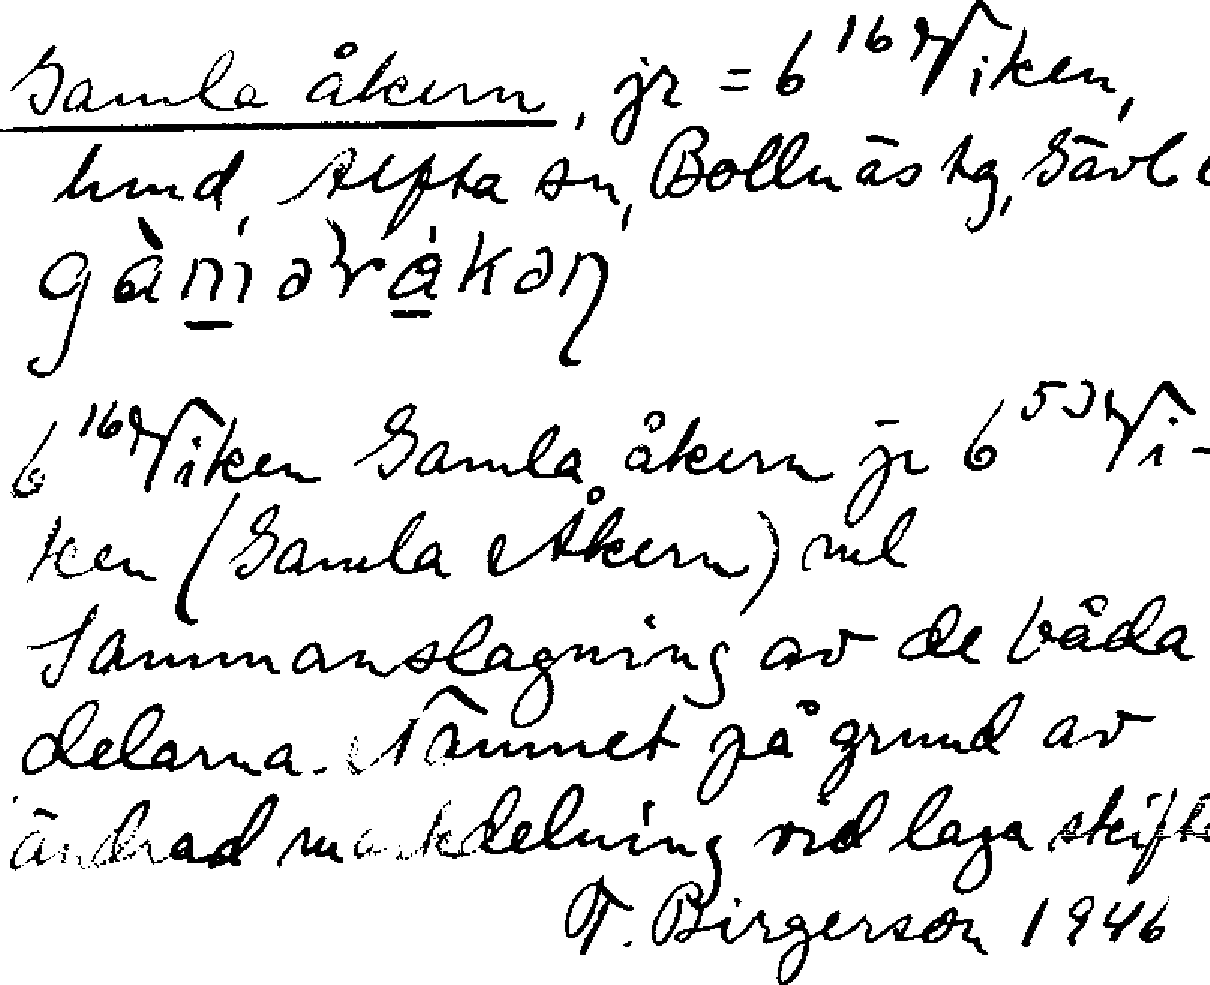 Gamla åkern, jr = 6¹⁶ Viken,
hmd, Alfta sn, Bollnäs tg, Gävle
gàm̲ərå̲kəṇ
6¹⁶ Viken Gamla åkern jr 6⁵³ Vi-
ken (Gamla Åkern) ml
Sammanslagning av de båda
delarna. Namnet på grund av
ändrad markdelning vid laga skifte
T. Birgerson 1946